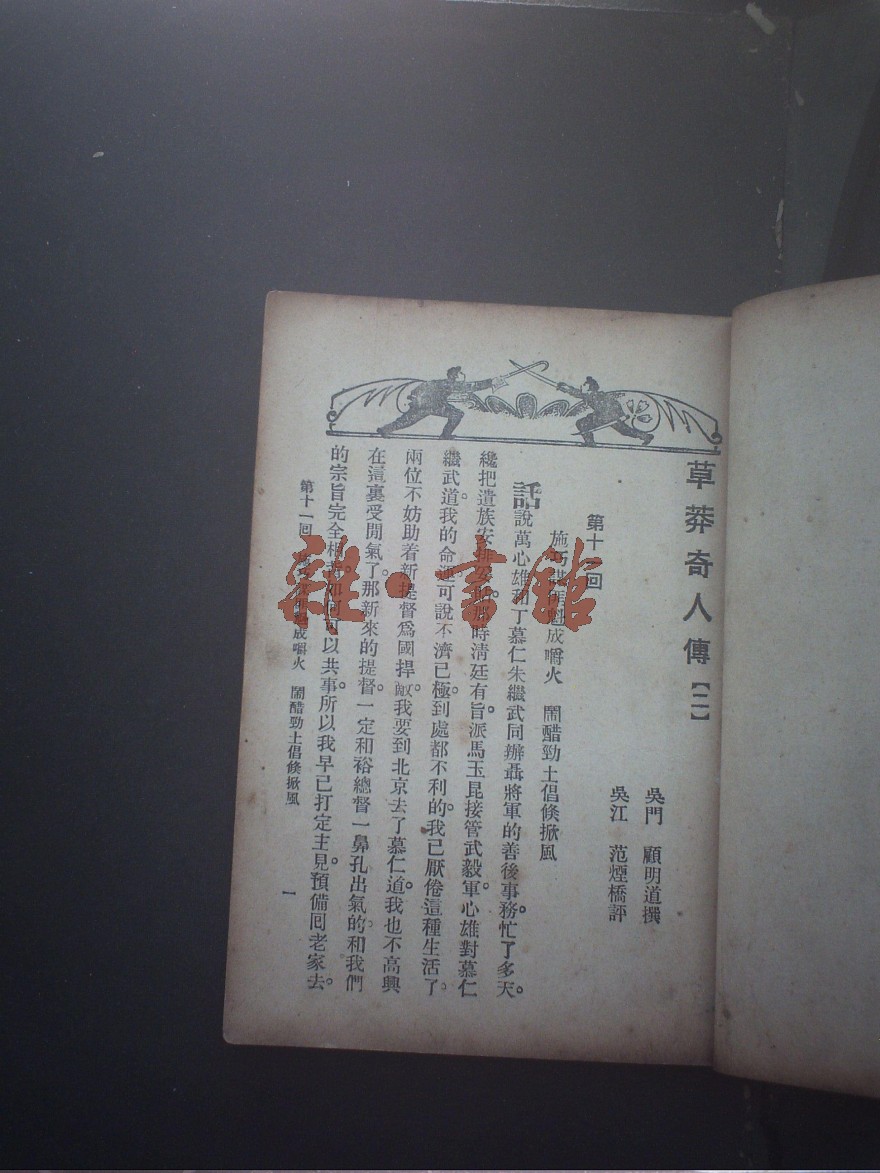 草莽奇人傳【二】
吳門　顧明道撰
吳江　范煙橋評
第十一回
施巧　成嚼火　鬧醋勁土倡倏掀風
話說萬心雄和丁慕仁朱繼武同辦聶將軍的善後事務。忙了多天。
纔把遺族安排妥　。那時清廷有旨派馬玉昆接管武毅軍心雄對慕仁
繼武道我的命運可說不濟已極。到處都不利的。我已厭倦這種生活了。
兩位不妨助着新提督爲國捍敵。我要到北京去了慕仁道。我也不高興
在這裏受閒氣了那新來的提督。一定和裕總督一鼻孔出氣的。和我們
的宗旨完全相　。如何可以共事所以我早已打定主見。預備囘老家去。
第十一囘　成嚼火　鬧醋勁土倡倏掀風
一
雜·書館